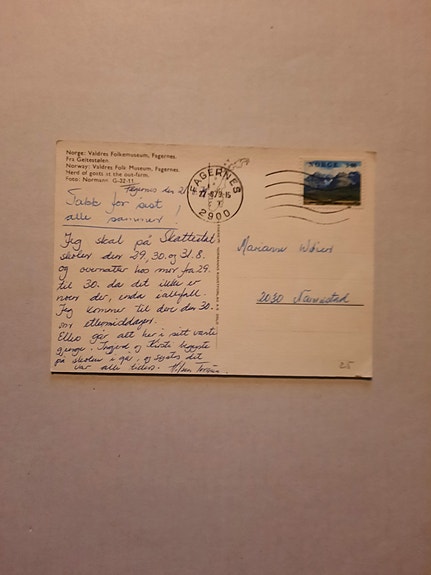 Norge: Valdres Folkemuseum, Fagernes.
Fra Geitestølen.
Norway: Valdres Folk Museum, Fagernes.
Herd of goats at the out-farm.
Foto: Normann G-32-11
Fagernes den 21
Takk for sist
alle sammen!
Jeg skal på
skolen den 29, 30. og 31.8.
og overnatter hos mor fra 29.
til 30. da det ikke er
noen der, enda iallfall.
Jeg kommer til dere den 30.
om ettermiddagen.
Ellers går alt her i sitt vante
gjenge. Ingerd og Kirsti begynte
på skolen i går, og syntes det
var alle tiders. Hilsen
FAGERNES
2900
NORGE
Marianne
2030 Nannestad
25